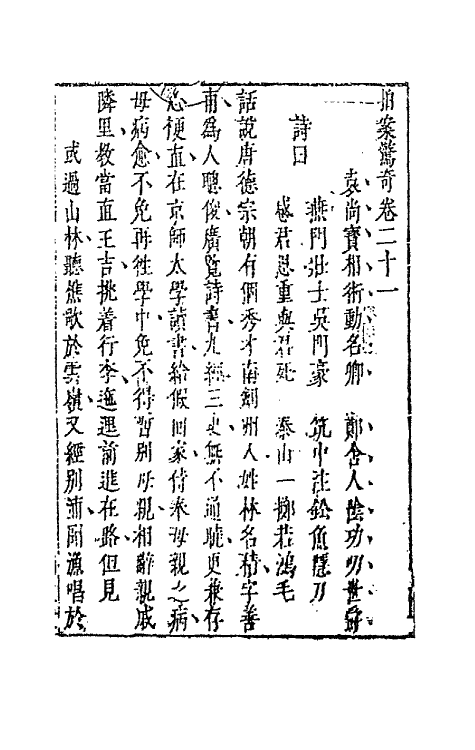 拍案驚奇卷二十一
袁尚寶相術動名卿　鄭舍人陰功叨世爵
詩曰
燕門壯士吳門豪　筑中注鉛魚隱刀
感君恩重與君死　泰山一擲若鴻毛
話說唐德宗朝有個秀才南劍州人姓林名積字善
甫為人聰俊廣覽詩書九經三史無不通曉更兼存
心梗直在京師太學讀書給假回家侍奉母親之病
母病愈不免再往學中免不得暫別母親相辭親戚
隣里教當直王吉挑着行李迤邐前進在路但見
或過山林聽樵歌於雲嶺又經別浦聞漁唱於